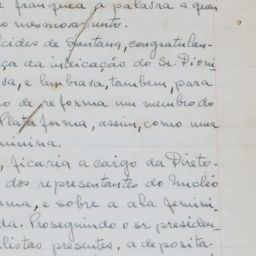 franquea a palavra a quem
o mesmo assunto.
cides de Santana, congratulan-
ça da indicação do Sr. Dioni
sa, e lembrava, tambem, para
o de reforma um membro do
Plataforma, assim, como uma
minina.
, ficaria a cargo da Direto-
dos representantes do Nucleo
rma, e sobre a ala femini-
da. Proseguindo o sr. presiden
listas presentes, a deposita-